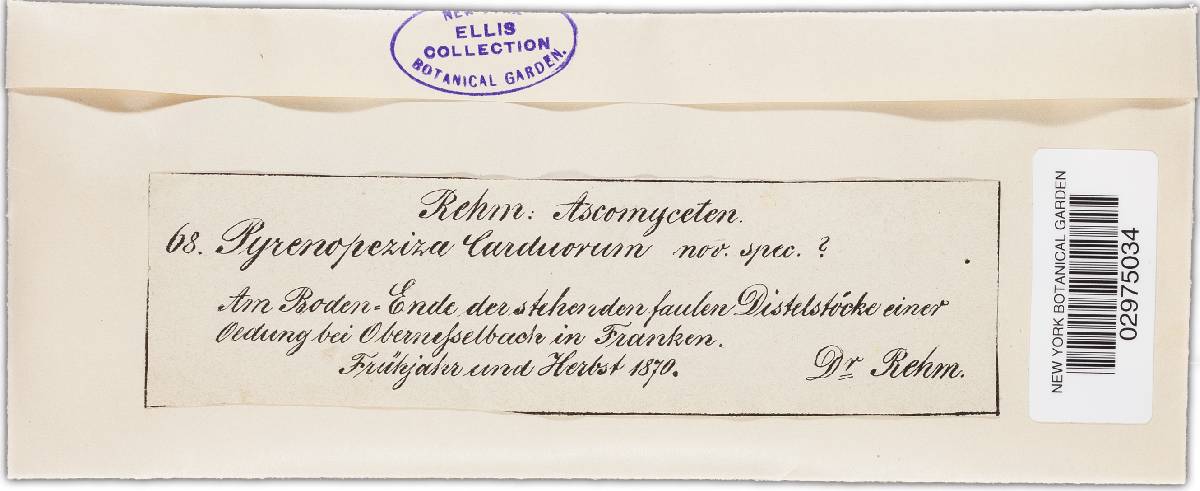 NEW YORK
ELLIS
COLLECTION
BOTANICAL GARDEN.
Rehm: Ascomyceten.
68. Pyrenopeziza Carduorum nov. spec. ?
Am Boden-Ende der stehenden faulen Distelstöcke einer
Oedung bei Obernesselbach in Franken.
Frühjahr und Herbst 1870.
Dr Rehm.
NEW YORK BOTANICAL GARDEN
02975034